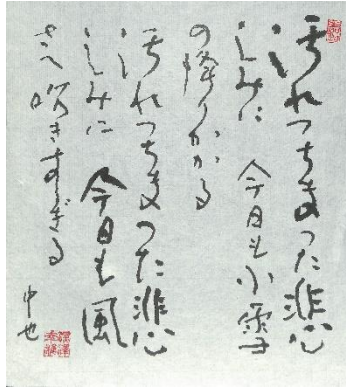 汚れつちまつた悲
しみに 今日も小雪
の降りかかる
汚れつちまつた悲
しみに 今日も風
さへ吹きすぎる
中也